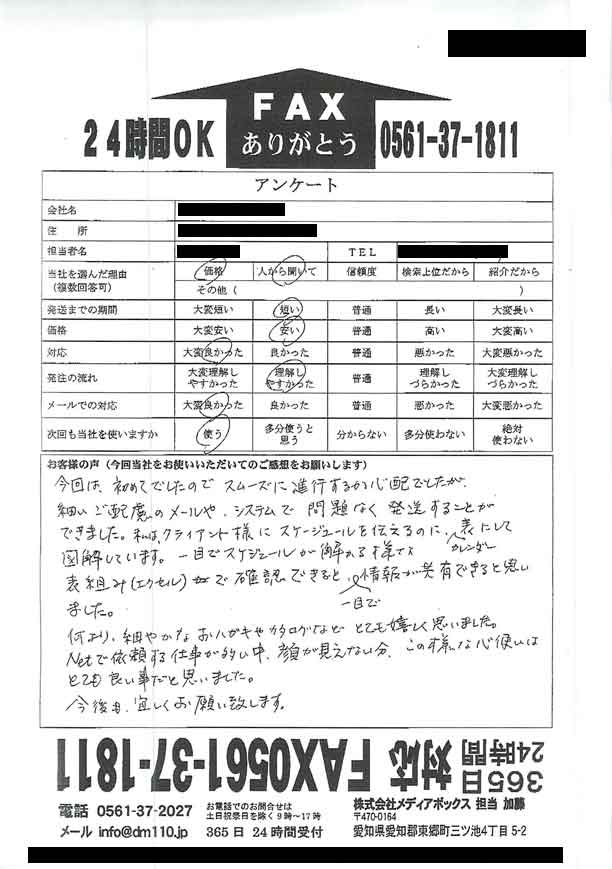 FAX
ありがとう
24時間OK
0561-37-1811
アンケート
会社名
住 所
担当者名 TEL
当社を選んだ理由(複数回答可) 価格 人から聞いて 信頼度 検索上位だから 紹介だから
その他( )
発送までの期間 大変短い 短い 普通 長い 大変長い
価格 大変安い 安い 普通 高い 大変高い
対応 大変良かった 良かった 普通 悪かった 大変悪かった
発注の流れ 大変理解しやすかった 理解しやすかった 普通 理解しづらかった 大変理解しづらかった
メールでの対応 大変良かった 良かった 普通 悪かった 大変悪かった
次回も当社を使いますか 使う 多分使うと思う 分からない 多分使わない 絶対使わない
お客様の声(今回当社をお使いいただいてのご感想をお願いします)
今回は、初めてでしたのでスムーズに進行するか心配でしたが、
細いご配慮のメールや、システムで問題なく発送することが
できました。私はクライアント様にスケージュールを伝えるのに、表にして
カレンダー
図解しています。一目でスケジュールが解かる様な
表組み(エクセル)で確認できると、情報が共有できると思い
一目で
ました。
何より、細やかなおハガキやカタログなどとても嬉しく思いました。
Netで依頼する仕事が多い中、顔が見えない分、この様な心使いは
とても良い事だと思いました。
今後も、宜しくお願い致します。
365日24時間対応 FAX0561-37-1811
電話 0561-37-2027
メール info@dm110.jp
お電話でのお問合せは
土日祝祭日を除く9時~17時
365日 24時間受付
株式会社メディアボックス 担当 加藤
〒470-0164
愛知県愛知郡東郷町三ツ池4丁目5-2